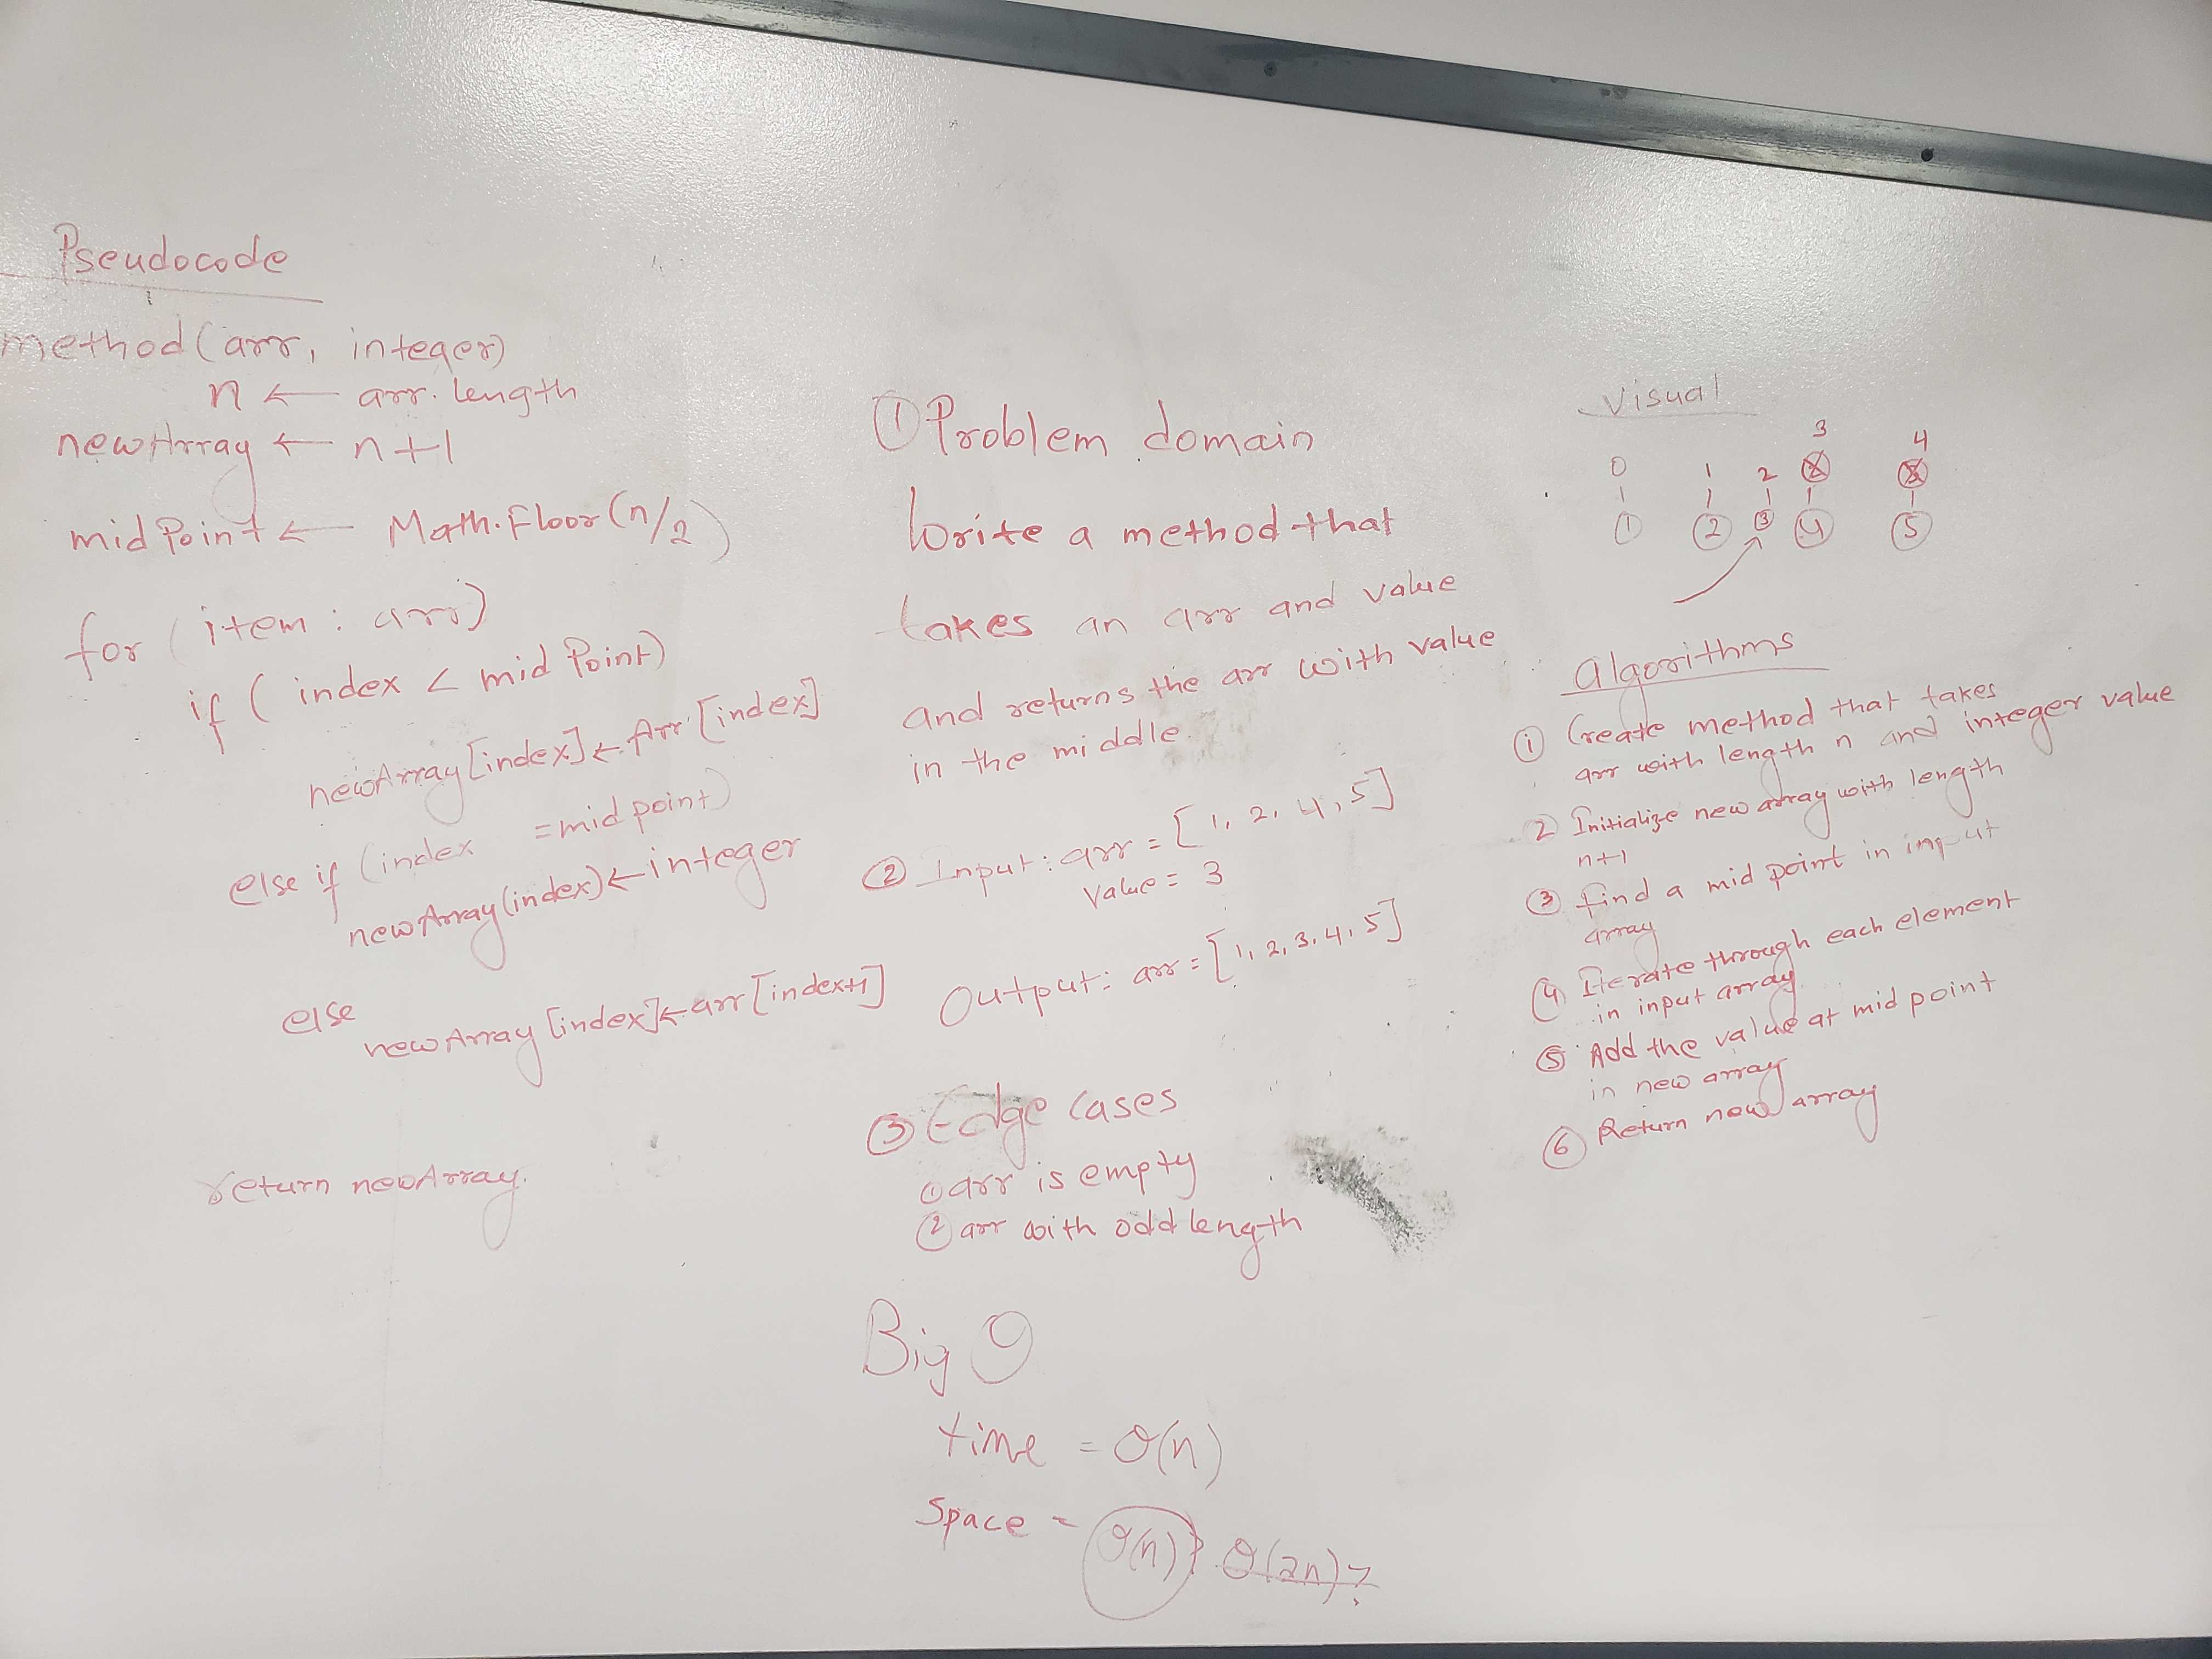 Pseudocode
method(arr, integer)
n ← arr.length
newArray ← n+1
midPoint ← Math.Floor(n/2)
for (item : arr)
if (index < midPoint)
newArray[index] ← Arr[index]
else if (index =midpoint)
newArray(index) ← integer
else
newArray[index] ← arr[index+1]
return newArray.
① Problem domain
Write a method that
takes an arr and value
and returns the arr with value
in the middle.
② Input: arr = [1, 2, 4, 5]
Value = 3
Output: arr = [1, 2, 3, 4, 5]
③ Edge cases
① arr is empty
② arr with odd length
Big O
time = O(n)
Space = O(n)? O(2n)?
Visual
3
4
0 1 2
1 2 3 4 5
Algorithms
① Create method that takes
arr with length n and integer value
2 Initialize new array with length
n+1
③ find a mid point in input
array
④ Iterate through each element
in input array.
⑤ Add the value at mid point
in new array
⑥ Return new array